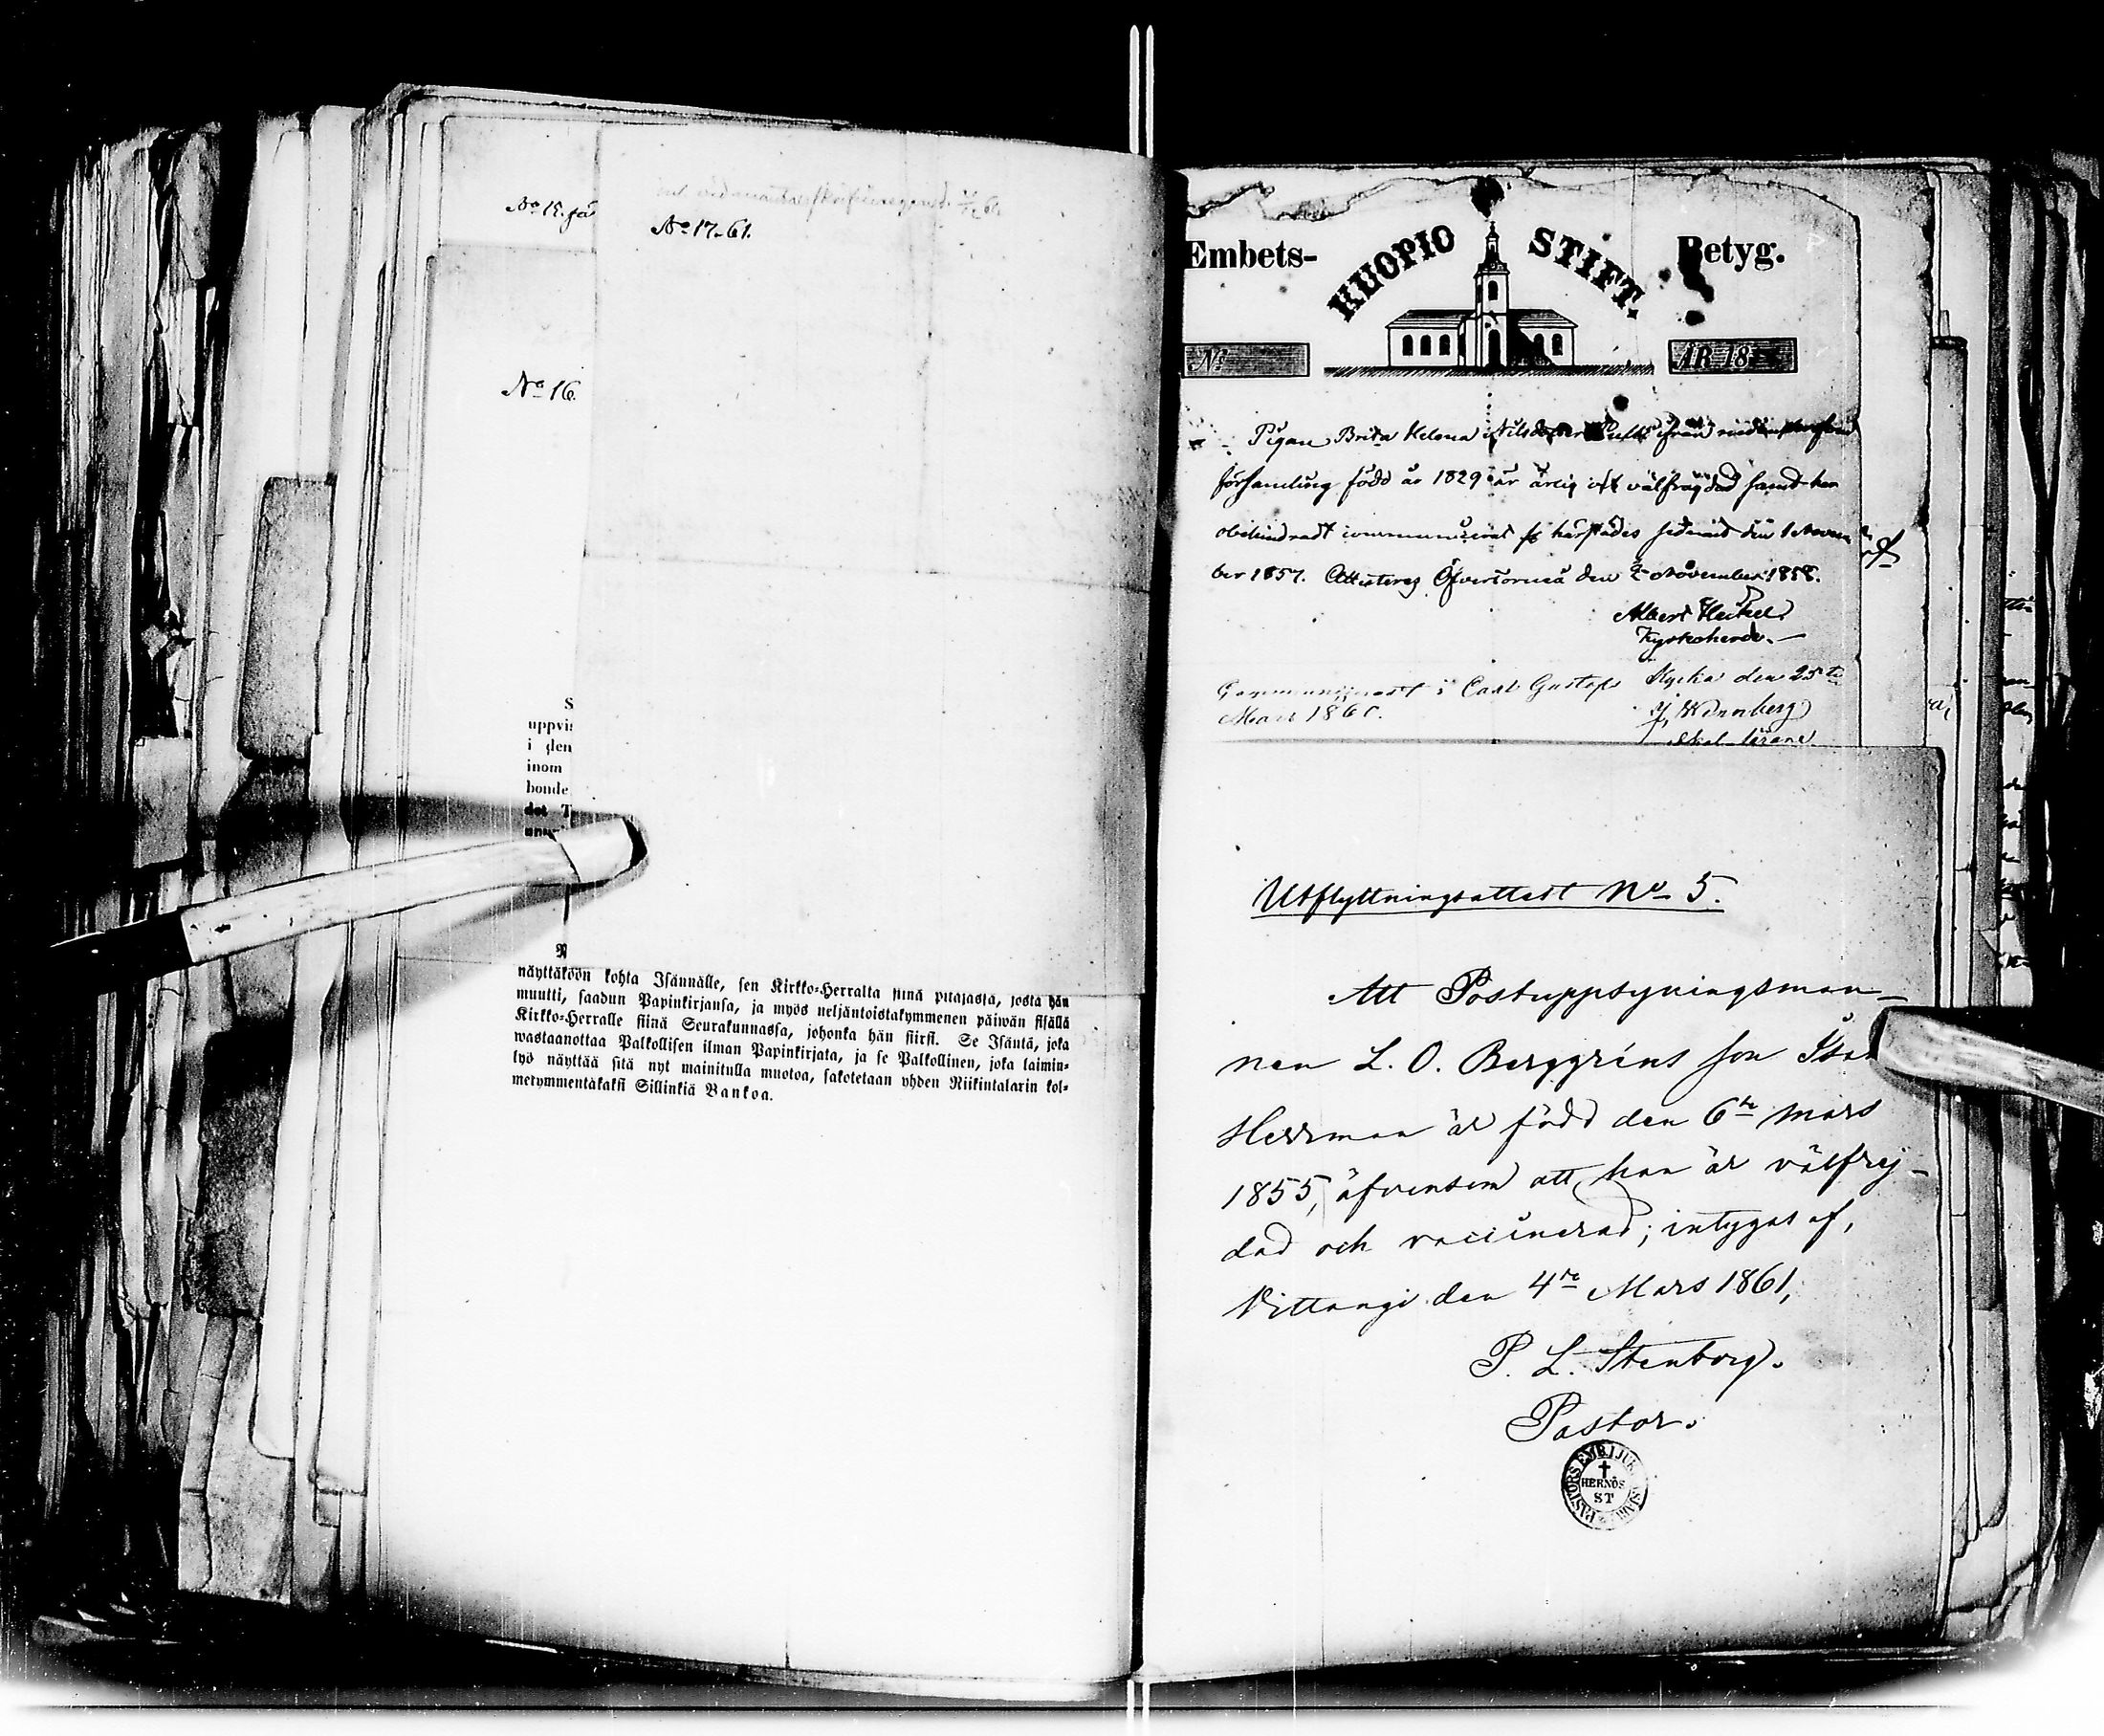 No 15.
No 17.61.
No 16.
S
uppvis
i den
inom
bonde
det T
N
näyttäköön kohta Isännälle, sen Kirkko-Herralta siinä pitäjässä, josta hän
muutti, saadun Papinkirjansa, ja myös neljäntoistakymmenen päiwän sisällä
Kirkko-Herralle siinä Seurakunnassa, johonka hän siirsi. Se Isäntä, joka
wastaanottaa Palkollisen ilman Papinkirjata, ja se Palkollinen, joka laimin-
lyö näyttää sitä nyt mainitulla muotoa, sakotetaan yhden Riikintalarin kol-
mekymmentäkaksi Sillinkiä Bankoa.
Embets- KUOPIO STIFT. Betyg.
No ÅR 18
Pigan Brita Helena Nilsdotter ifrån
församling född år 1829 är ärlig och välfrägdad samt har
obehindradt communicerat härstädes sednast den 1 Novem
ber 1857. Attesteras Öfvertorneå den 2 November 1858.
Albert Heikel
Kyrkoherde.
i Carl Gustafs Kyrka den 25te
Mars 1860.
Wennberg
Utflyttningsattest No 5.
Att Postuppsyningsman-
nen L. O. Berggréns son
Herrman är född den 6te Mars
1855, äfvensom att han är välfrej-
dad och vaccinerad; intygas af,
Vittangi den 4de Mars 1861,
P. L. Stenborg.
Pastor.
PASTORS EMB. I JUKKASJÄRVI
HERNÖS
ST